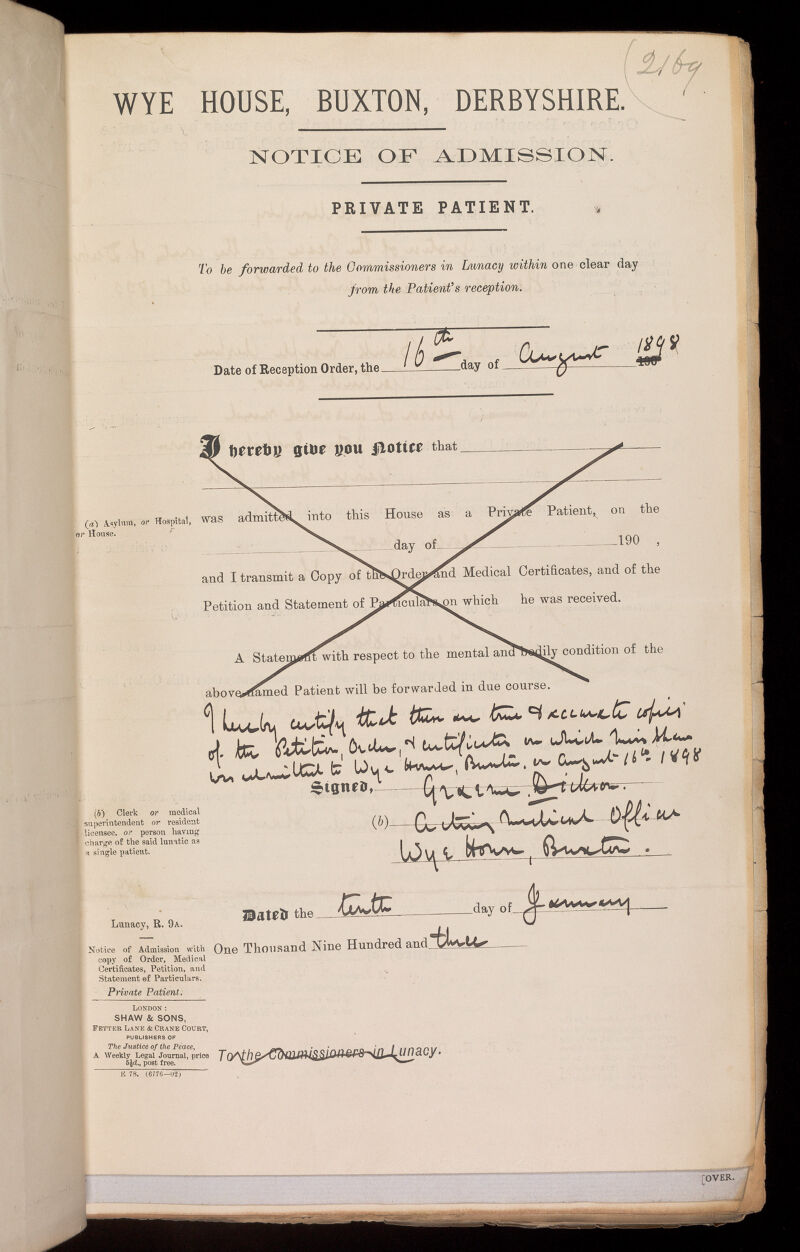 2169
WYE HOUSE, BUXTON, DERBYSHIRE.
NOTICE OF ADMISSION.
PRIVATE PATIENT.
To be forwarded to the Commissioners in Lunacy within one clear day
from the Patient's reception.
Date of Reception Order, the 16th day of August 1898 190
I hereby give you Notice that
(a) Asylum, or Hospital,
or House.
was admitted into this House as a Private Patient, on the
day of 190 ,
and I transmit a Copy of the Order and Medical Certificates, and of the
Petition and Statement of Particulars on which he was received.
A Statement with respect to the mental and bodily condition of the
above-named Patient will be forwarded in due course.
I hereby certify that these are true & accurate copies
of the Petition, Order, & certificates on which Miss Shaw
was admitted to Wye House, Buxton, on August 16th 1898
Signed, Graeme Dickson.
(b) Clerk or medical
superintendent or resident
licensee, or person having
charge of the said lunatic as
a single patient.
(b) Acting Medical Officer
Wye House, Buxton.
Dated the tenth day of January
One Thousand Nine Hundred and three
Lunacy, R. 9A.
Notice of Admission with
copy of Order, Medical
Certificates, Petition, and
Statement of Particulars.
Private Patient.
LONDON:
SHAW & SONS,
FETTER LANE & CRANE COURT,
PUBLISHERS OF
The Justice of the Peace,
A Weekly Legal Journal, price
5½d., post free.
E 78. (6776—02)
To the Commissioners in Lunacy.
[OVER.